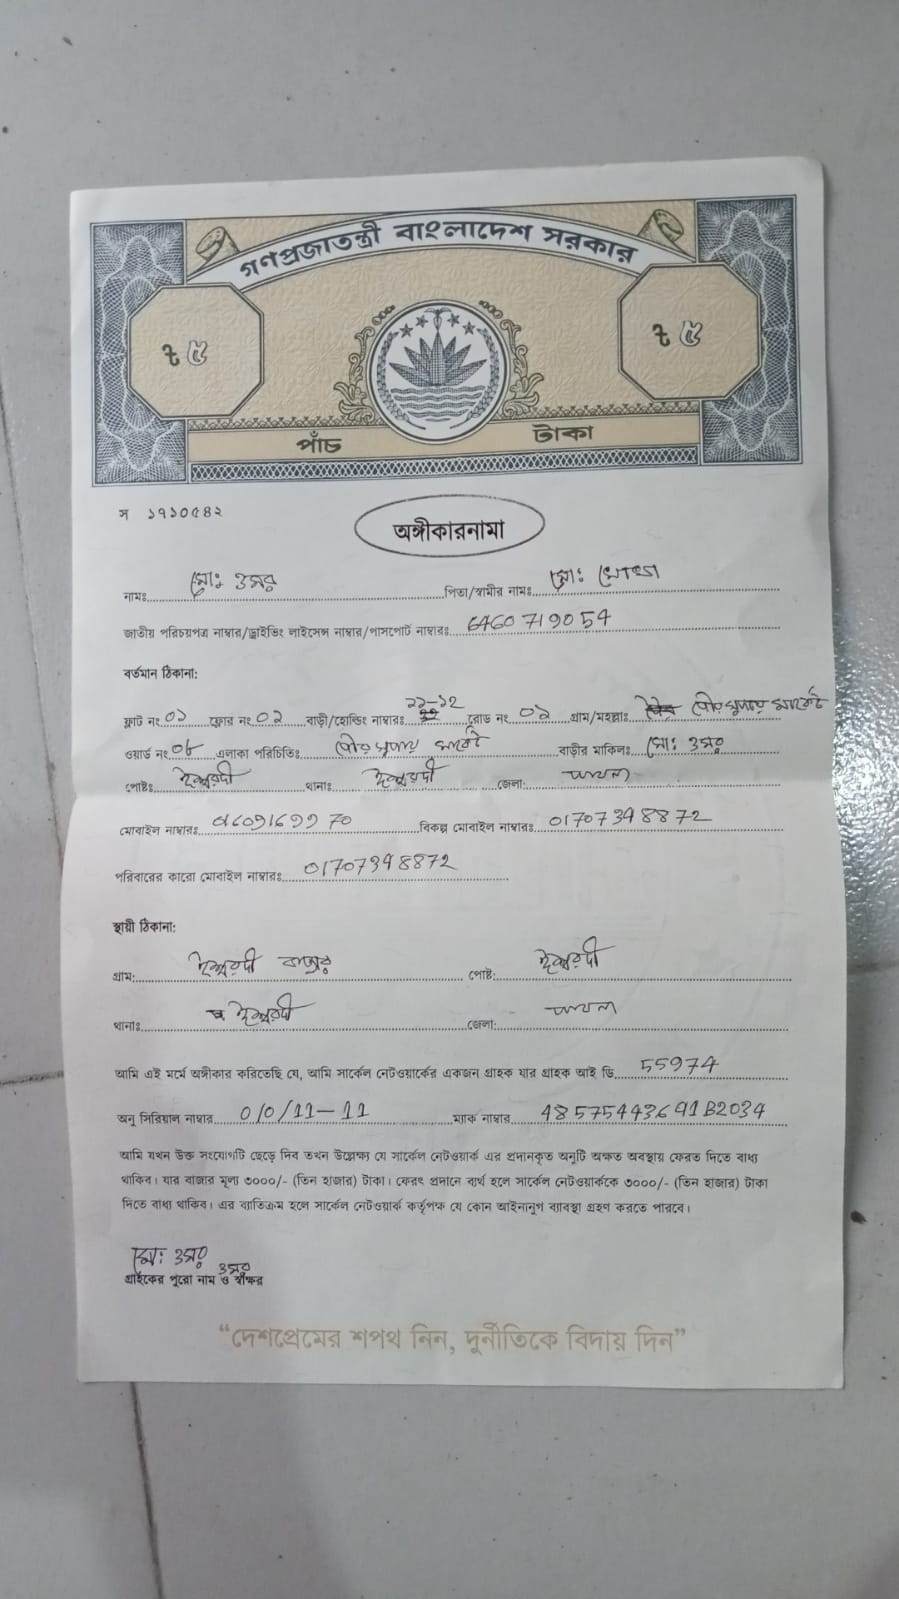 গণপ্রজাতন্ত্রী বাংলাদেশ সরকার
৳ ৫ ৳ ৫
পাঁচ টাকা
স ১৭১০৫৪২
অঙ্গীকারনামা
নামঃ মোঃ ওমর পিতা/স্বামীর নামঃ মোঃ
জাতীয় পরিচয়পত্র নাম্বার/ড্রাইভিং লাইসেন্স নাম্বার/পাসপোর্ট নাম্বারঃ 6460719054
বর্তমান ঠিকানা:
ফ্লাট নং ০১ ফ্লোর নং ০২ বাড়ী/হোল্ডিং নাম্বারঃ ১১-১২ রোড নং ০১ গ্রাম/মহল্লাঃ পৌর সুপার মার্কেট
ওয়ার্ড নং ০৮ এলাকা পরিচিতিঃ পৌর সুপার মার্কেট বাড়ীর মালিকঃ মোঃ ওমর
পোষ্টঃ ঈশ্বরদী থানাঃ ঈশ্বরদী জেলা: পাবনা
মোবাইল নাম্বারঃ বিকল্প মোবাইল নাম্বারঃ 01707398872
পরিবারের কারো মোবাইল নাম্বারঃ 01707398872
স্থায়ী ঠিকানা:
গ্রাম: ঈশ্বরদী বাজার পোষ্ট: ঈশ্বরদী
থানাঃ ঈশ্বরদী জেলা: পাবনা
আমি এই মর্মে অঙ্গীকার করিতেছি যে, আমি সার্কেল নেটওয়ার্কের একজন গ্রাহক যার গ্রাহক আই ডি 55974
অনু সিরিয়াল নাম্বার 0/0/11-11 ম্যাক নাম্বার 48575443691B2034
আমি যখন উক্ত সংযোগটি ছেড়ে দিব তখন উল্লেক্ষ্য যে সার্কেল নেটওয়ার্ক এর প্রদানকৃত অনুটি অক্ষত অবস্থায় ফেরত দিতে বাধ্য
থাকিব। যার বাজার মূল্য ৩০০০/- (তিন হাজার) টাকা। ফেরৎ প্রদানে ব্যর্থ হলে সার্কেল নেটওয়ার্ককে ৩০০০/- (তিন হাজার) টাকা
দিতে বাধ্য থাকিব। এর ব্যতিক্রম হলে সার্কেল নেটওয়ার্ক কর্তৃপক্ষ যে কোন আইনানুগ ব্যাবস্থা গ্রহণ করতে পারবে।
মোঃ ওমর
ওমর
গ্রাহকের পুরো নাম ও স্বাক্ষর
“দেশপ্রেমের শপথ নিন, দুর্নীতিকে বিদায় দিন”